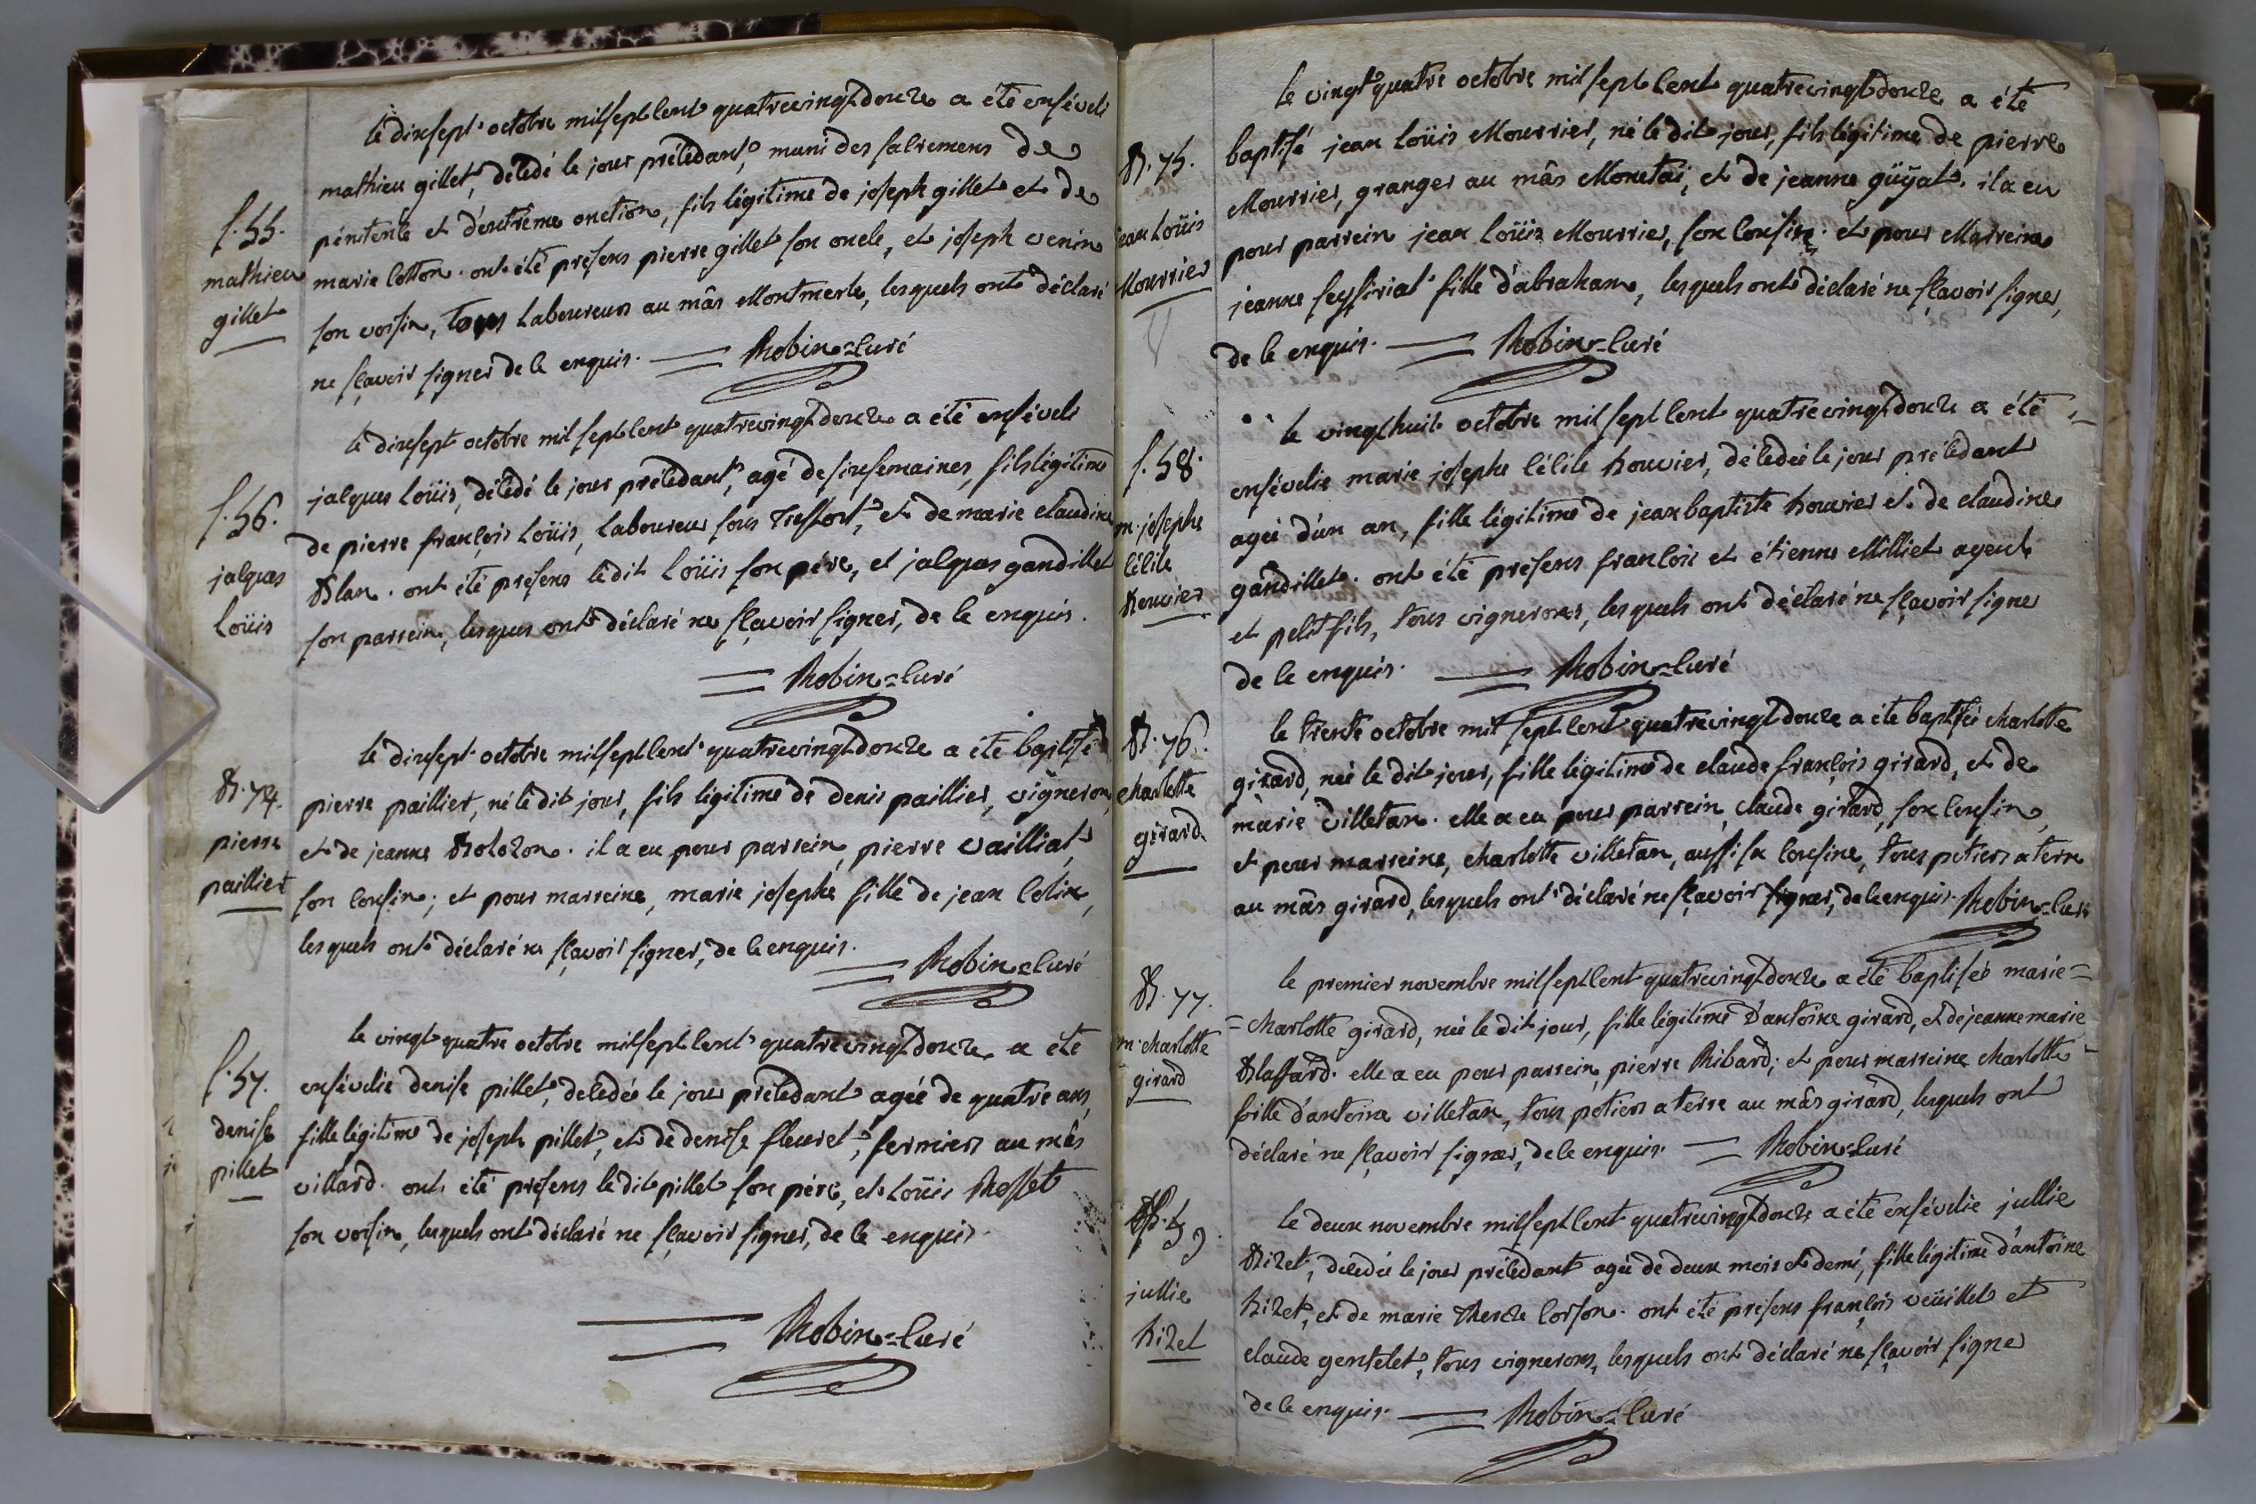 S. 55.
mathieu
gillet
le dixsept octobre mil sept cent quatrevingt douze a été enséveli
mathieu gillet, décédé le jour précédant, muni des sacremens de
pénitence et d'extrême onction, fils légitime de joseph gillet et de
marie Cotton. ont été présens pierre gillet son oncle, et joseph venin
son voisin, tous Laboureurs au mâs Montmerle, lesquels ont déclaré
ne sçavoir signer de ce enquis. Robin=Curé
S. 56.
jacques
Loüis
le dixsept octobre mil sept cent quatrevingt douze a été enséveli
jacques Loüis, décédé le jour précédant, agé de six semaines, fils légitime
de pierre françois Loüis, Laboureur sous Treffort, et de marie claudine
Blan. ont été présens ledit Loüis son père, et jacques gandillet
son parrein, lesques ont déclaré ne sçavoir signer, de ce enquis.
Robin=Curé
B. 74.
pierre
paillier
le dixsept octobre mil sept cent quatrevingt douze a été baptisé
pierre paillier, né le dit jour, fils légitime de denis paillier, vigneron,
et de jeanne Bolozon. il a eu pour parrein, pierre vailliat,
son cousin; et pour marreine, marie josephe fille de jean Colin,
lesquels ont déclaré ne sçavoir signer, de ce enquis.
Robin=Curé
S. 57.
denise
pillet
le vingt quatre octobre mil sept cent quatrevingt douze a été
ensévelie denise pillet, décédée le jour précédant agée de quatre ans,
fille légitime de joseph pillet, et de denise fleuret, fermiers au mâs
villard. ont été présens ledit pillet son père, et Loüis Rosset
son voisin, lesquels ont déclaré ne sçavoir signer, de ce enquis.
Robin=Curé
B. 75.
jean Loüis
Mourrier
le vingt quatre octobre mil sept cent quatrevingt douze a été
baptisé jean Loüis Mourrier, né le dit jour, fils légitime de pierre
Mourrier, granger au mâs Monetaï, et de jeanne güyat. il a eu
pour parrein jean Loüis Mourrier, son cousin. et pour Marreine
jeanne feyssiriat fille d'abraham, lesquels ont déclaré ne sçavoir signer,
de ce enquis. Robin=Curé
S. 58.
m. josephe
Cécile
Bouvier
le vingt huit octobre mil sept cent quatrevingt douze a été
ensévelie marie josephe Cécile Bouvier, décédée le jour précédant
agée d'un an, fille légitime de jean baptiste Bouvier et de claudine
gandillet. ont été présens francois et étienne Milliet ayeul
et petit fils, tous vignerons, lesquels ont déclaré ne sçavoir signer
de ce enquis. Robin=Curé
B. 76.
charlotte
girard
le trente octobre mil sept cent quatrevingt douze a été baptisée charlotte
girard, née le dit jour, fille légitime de claude françois girard, et de
marie villetan. elle a eu pour parrein, claude girard, son cousin,
et pour marreine, charlotte villetan, aussi sa cousine, tous potiers a terre
au mâs girard, lesquels ont déclaré ne sçavoir signer, de ce enquis. Robin=Curé
B. 77.
m. charlotte
girard
le premier novembre mil sept cent quatrevingt douze a été baptisée marie=
=charlotte girard, née le dit jour, fille légitime d'antoine girard, et de jeanne marie
Blaffard. elle a eu pour parrein, pierre Ribard; et pour marreine charlotte
fille d'antoine villetan, tous potiers a terre au mâs girard, lesquels ont
déclaré ne sçavoir signer, de ce enquis. Robin=Curé
S. 59.
jullie
bizet
le deux novembre mil sept cent quatrevingt douze a été ensévelie jullie
Bizet, décédée le jour précédant agée de deux mois et demi, fille légitime d'antoine
bizet, et de marie therese Corson. ont été présens françois veüillet et
claude gentelet, tous vignerons, lesquels ont déclaré ne sçavoir signer
de ce enquis. Robin=Curé